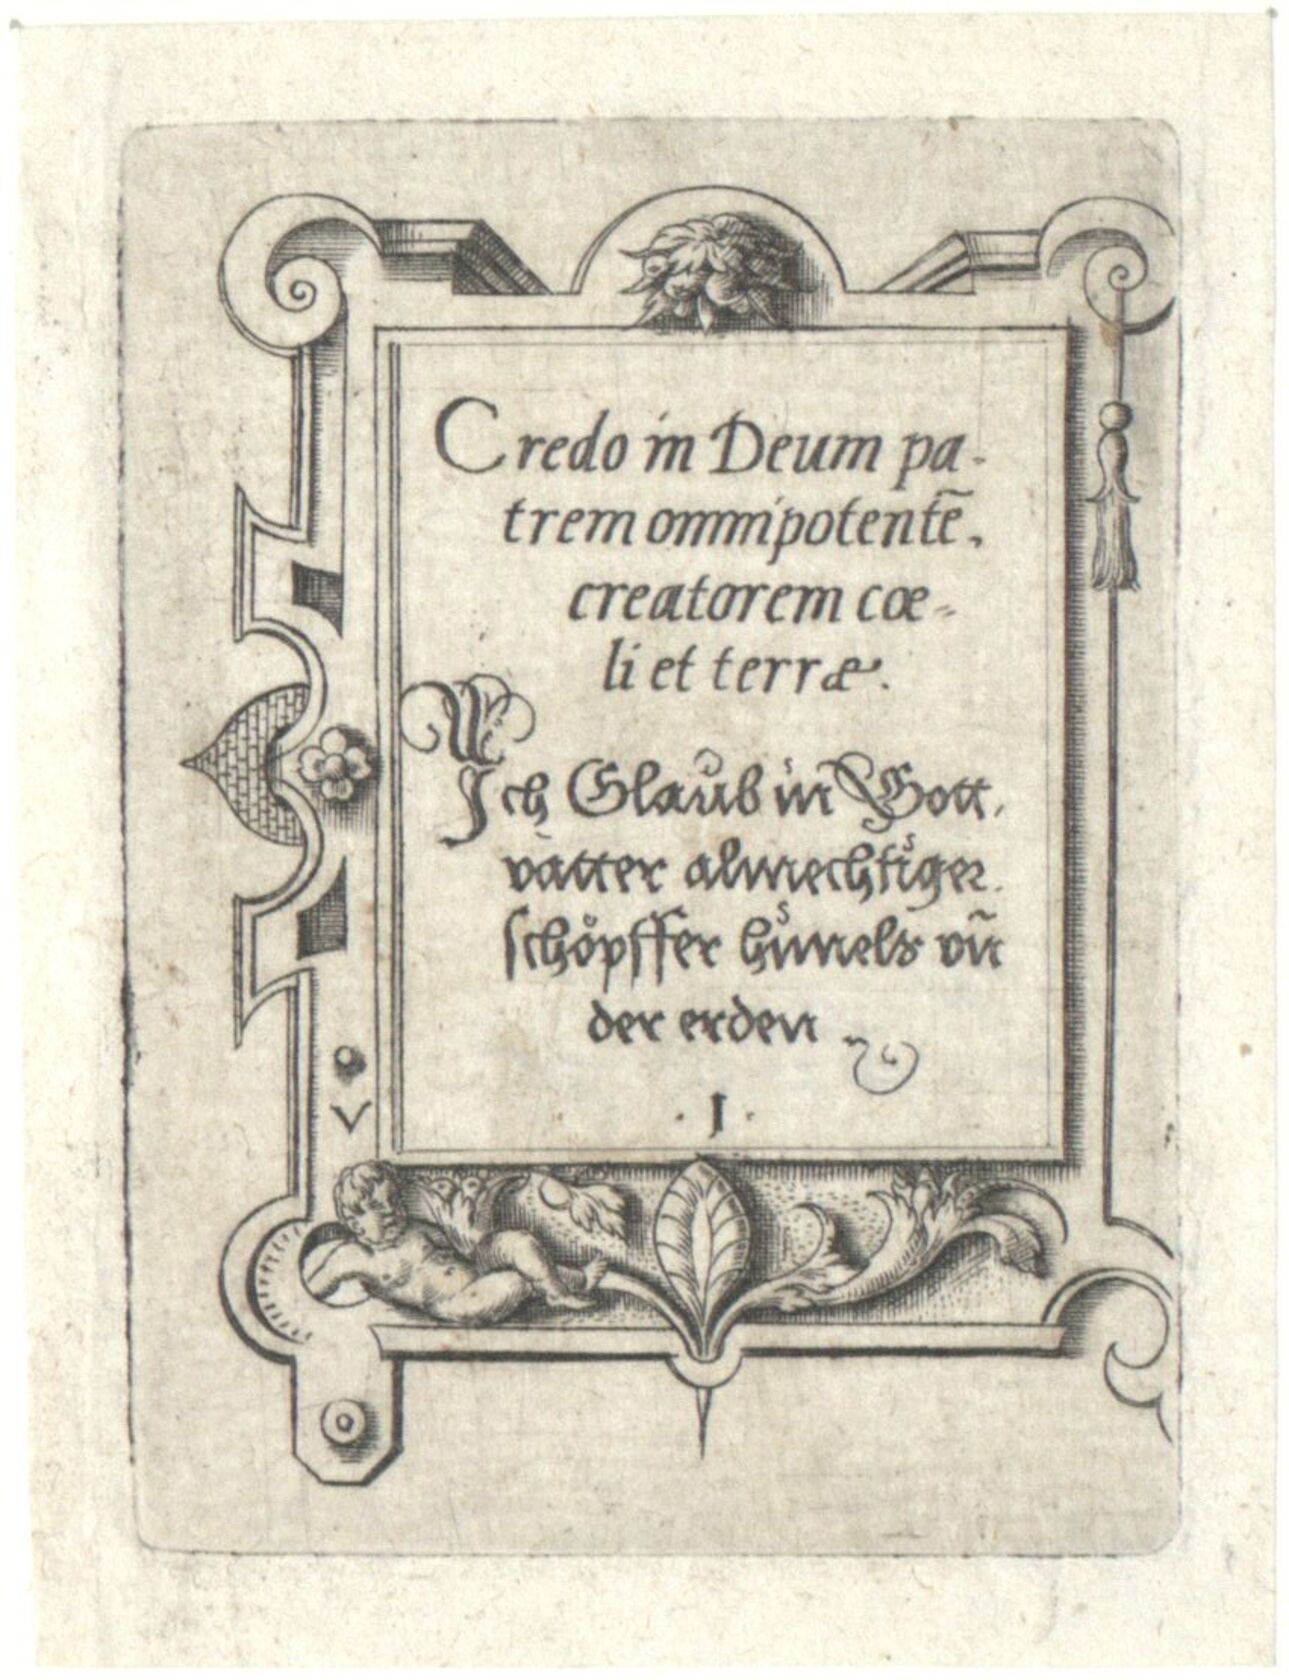 Credo in Deum pa-
trem omnipotentē,
creatorem cœ-
li et terræ.
Ich Glaub in Gott,
vatter almechtiger
schöpffer himels vñ
der erden
. I .